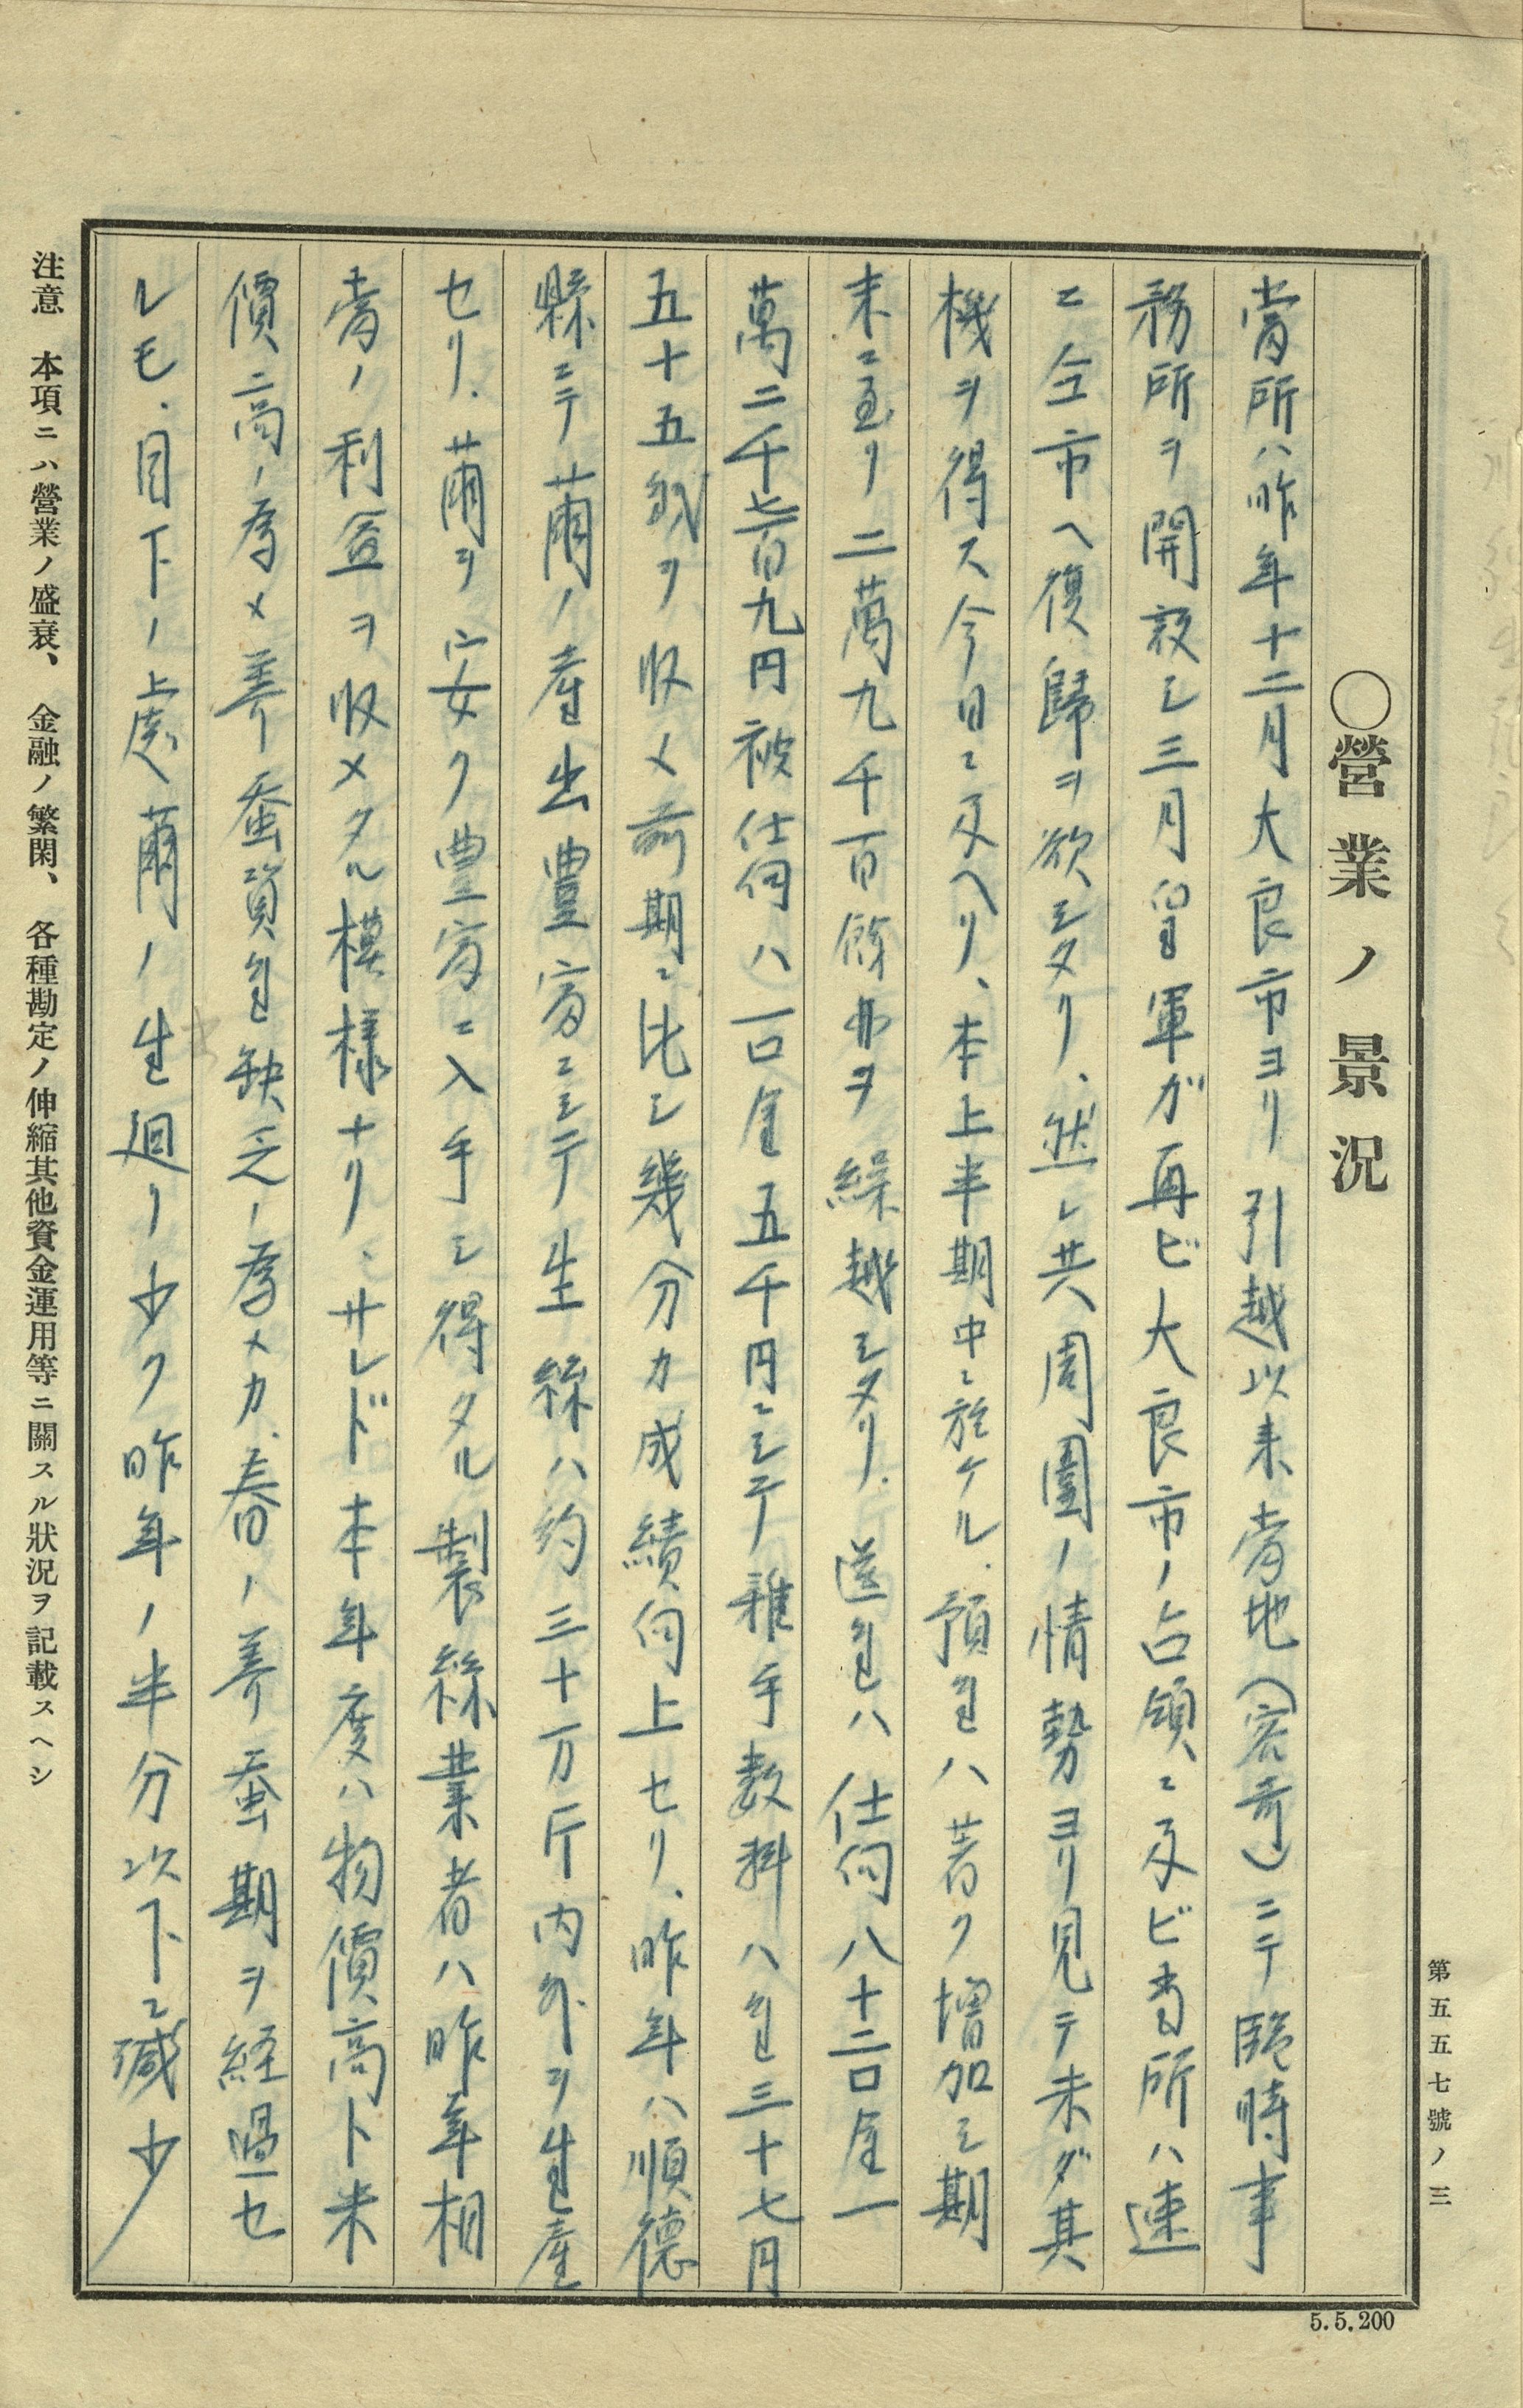 第五五七號ノ三
〇營業ノ景況
當所ハ昨年十二月大良市ヨリ引越以来当地(容奇)ニテ臨時事
務所ヲ開設シ三月皇軍ガ再ビ大良市ノ占領ニ及ビ当所ハ速
ニ仝市ヘ復歸ヲ欲シタリ、然レ共周圍ノ情勢ヨリ見テ未ダ其
機ヲ得ス今日ニ及ヘリ、本上半期中ニ於ケル、預金ハ著ク増加シ期
末ニ至リ二萬九千百餘弗ヲ繰越シタリ、送金ハ仕向八十二口金一
萬二千七百九円被仕向ハ一口金五千円ニシテ雑手数料ハ金三十七円
五十五銭ヲ収メ前期ニ比シ幾分カ成績向上セリ、昨年ハ順德
縣ニテ繭ノ產出豊富ニシテ生絲ハ約三十万斤内外ヲ生產
セリ、繭ヲ安ク豊富ニ入手シ得タル製絲業者ハ昨年相
當ノ利益ヲ収メタル模様ナリ、サレド本年度ハ物價高ト米
價高ノ為メ養蚕資金缺乏ノ為メカ、春ノ養蚕期ヲ経過セ
ルモ、目下ノ處繭ノ生廻リ少ク昨年ノ半分以下ニ減少
注意 本項ニハ營業ノ盛衰、金融ノ繁閑、各種勘定ノ伸縮其他資金運用等ニ關スル狀況ヲ記載スヘシ
5.5.200